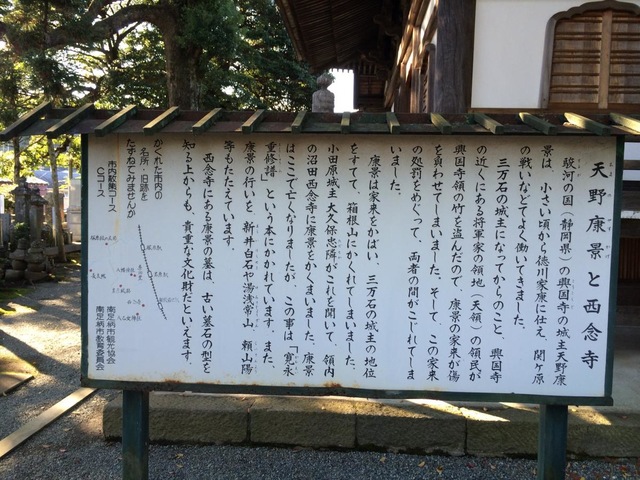 天野康景と西念寺
駿河の国(静岡県)の興国寺の城主天野康
景は、小さい頃から徳川家康に仕え、関ヶ原
の戦いなどでよく働いてきました。
三万石の城主になってからのこと、興国寺
の近くにある将軍家の領地(天領)の領民が
興国寺領の竹を盗んだので、康景の家来が傷
を負わせてしまいました。そして、この家来
の処罰をめぐって、両者の間がこじれてしま
いました。
康景は家来をかばい、三万石の城主の地位
をすてて、箱根山にかくれてしまいました。
小田原城主大久保忠隣がこれを聞いて、領内
の沼田西念寺に康景をかくまいました。康景
はここで亡くなりましたが、この事は「寛永
重修譜」という本にかかれています。また、
康景の行いを、新井白石や湯浅常山、頼山陽
等もたたえています。
西念寺にある康景の墓は、古い墓石の型を
知る上からも、貴重な文化財だといえます。
かくれた市内の
名所・旧跡を
たずねてみませんか
市内散策コース
Cコース
南足柄市観光協会
南足柄市教育委員会